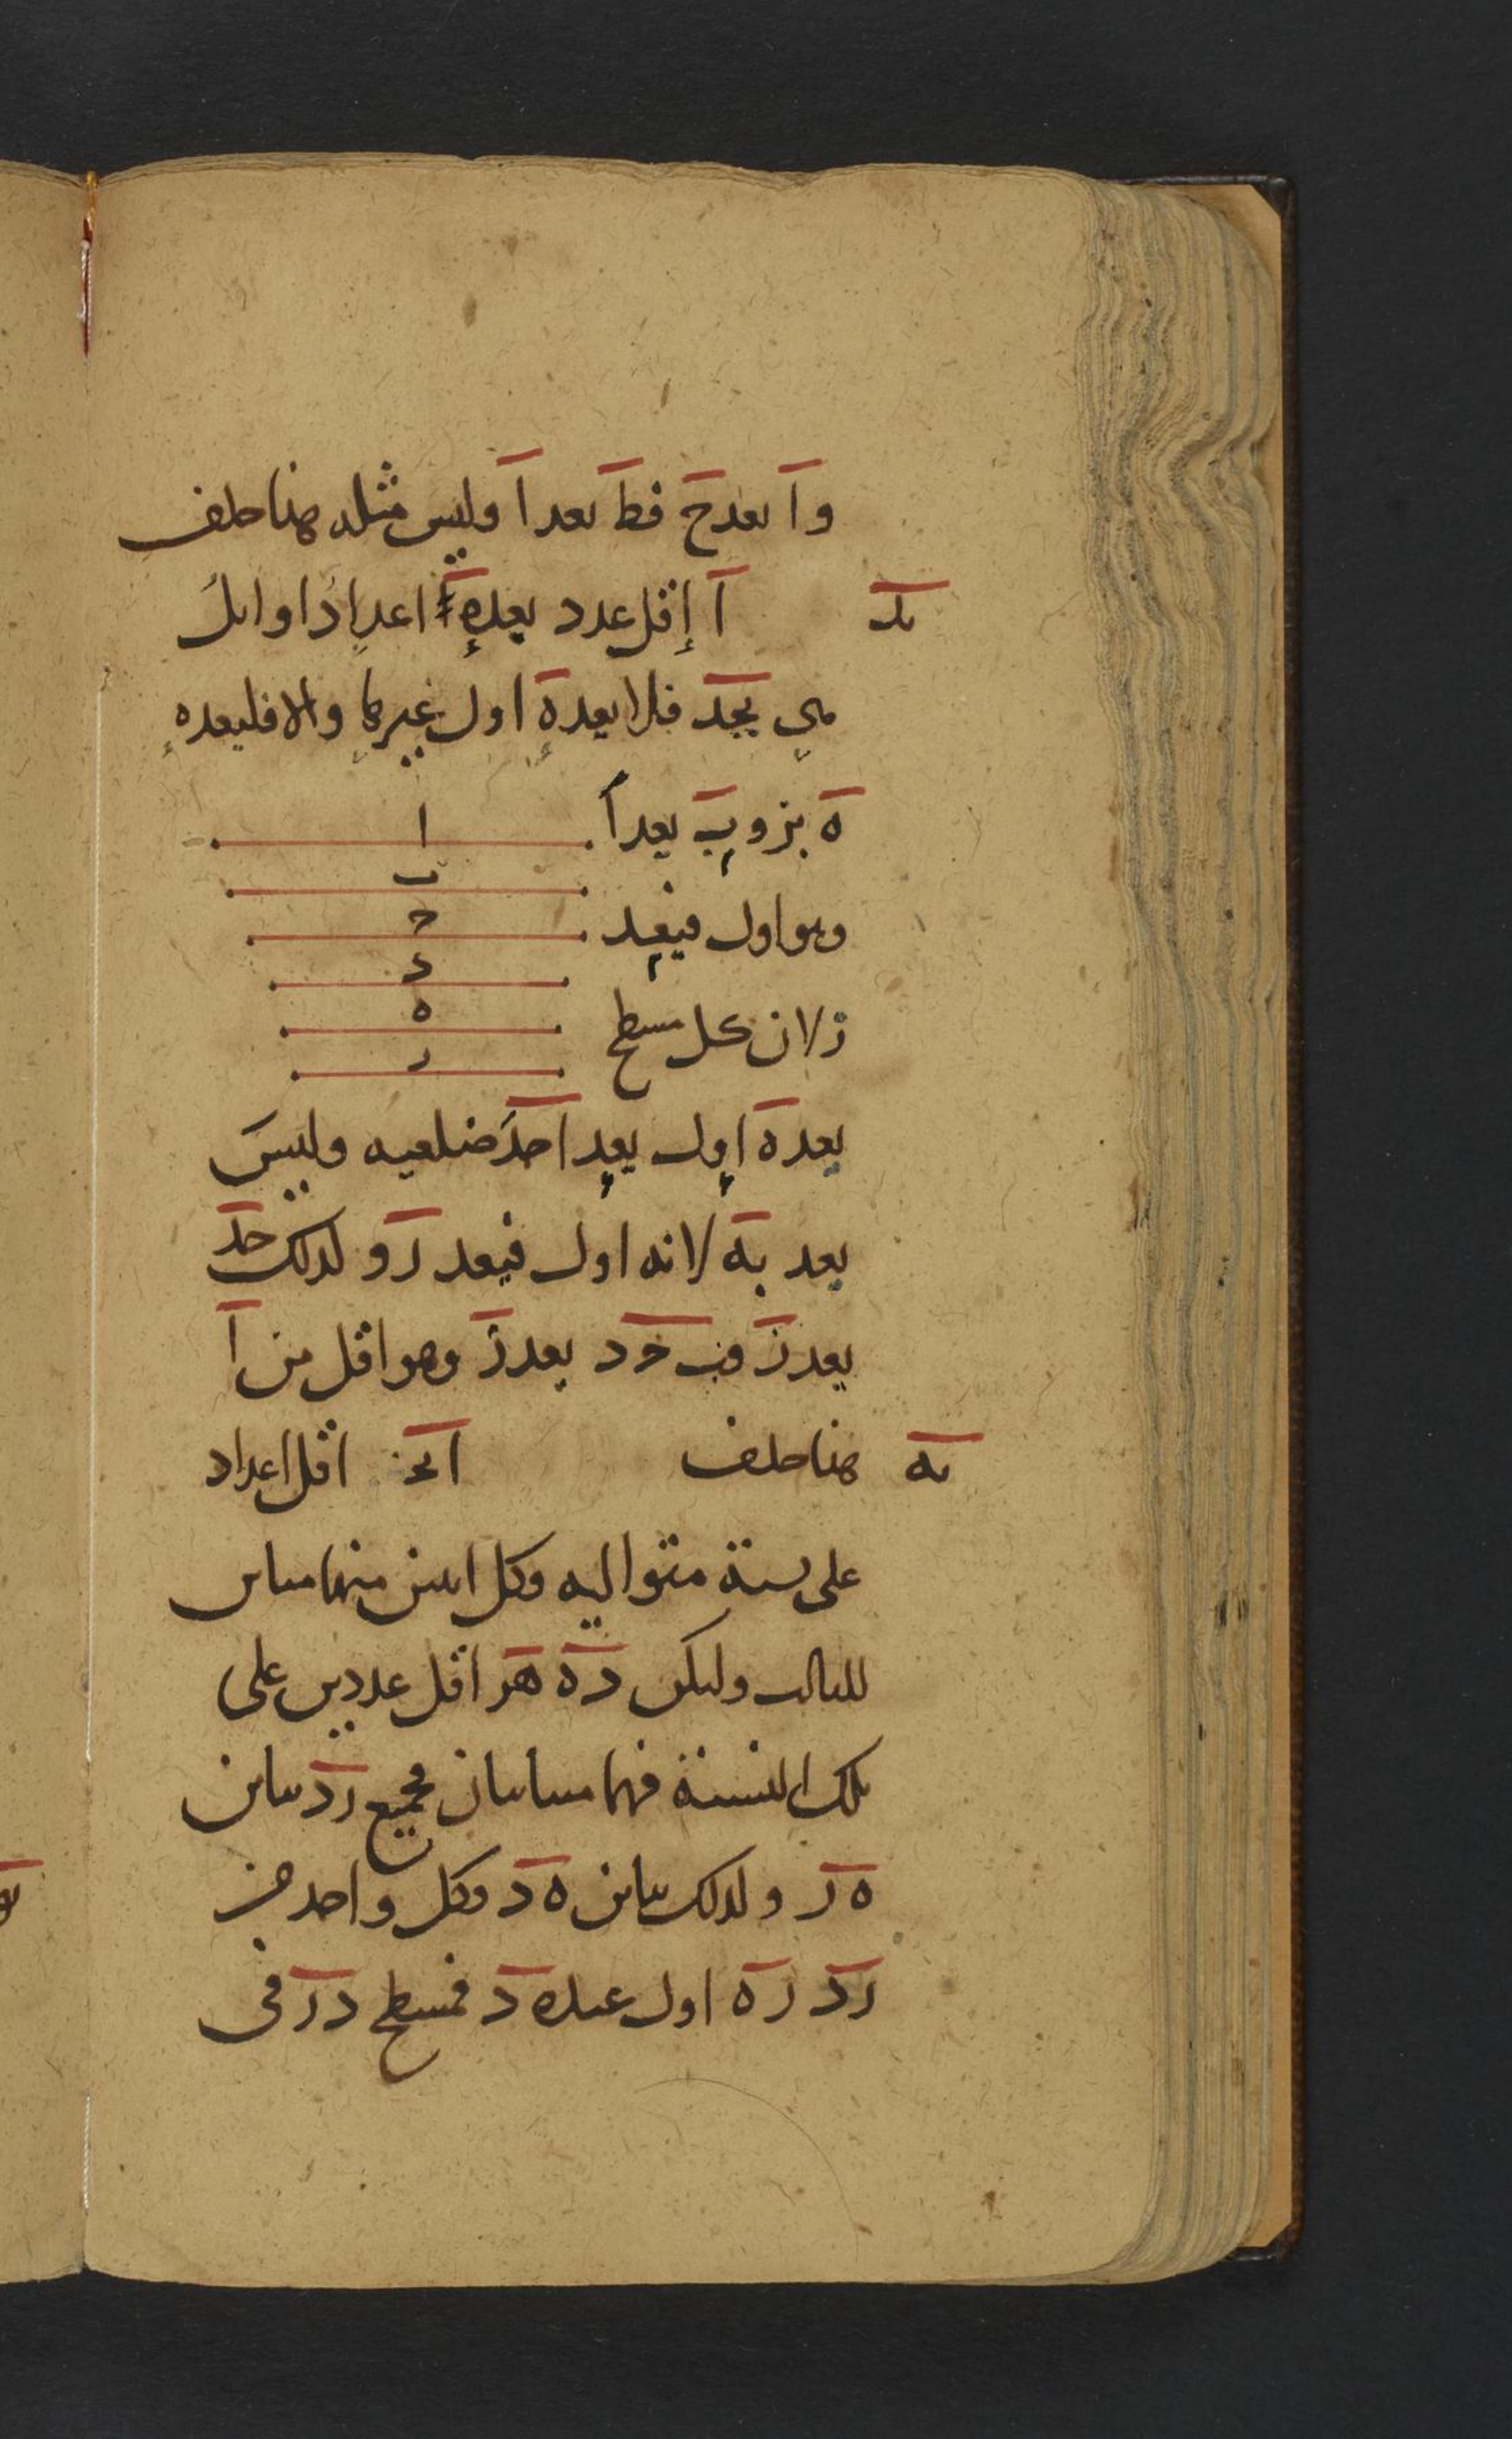 وا يعد ح فط يعد ا وليس مثله هذا خلف
يد ا اقل عدد يعده اعداد اوايل
هي بجد فلا يعده اول غيرها والا فليعده
ه بز وب يعد ا
وهو اول فيعد
ز لان كل مسطح
ا
ب
ح
د
ه
ر
يعده اول يعد احد ضلعيه وليس
يعد به لانه اول فيعد ز ولذلك حد
يعد ز فب ح د يعد ز وهو اقل من ا
يه هذا خلف ابج اقل اعداد
على نسبة متواليه وكل اثنين منها مباين
للثالث وليكن ده هز اقل عددين على
تلك النسبة فهما متباينان فجميع زد يباين
ه ز ولذلك يباين ه د وكل واحد من
زد زه اول عند ه د فمسطح د ز في